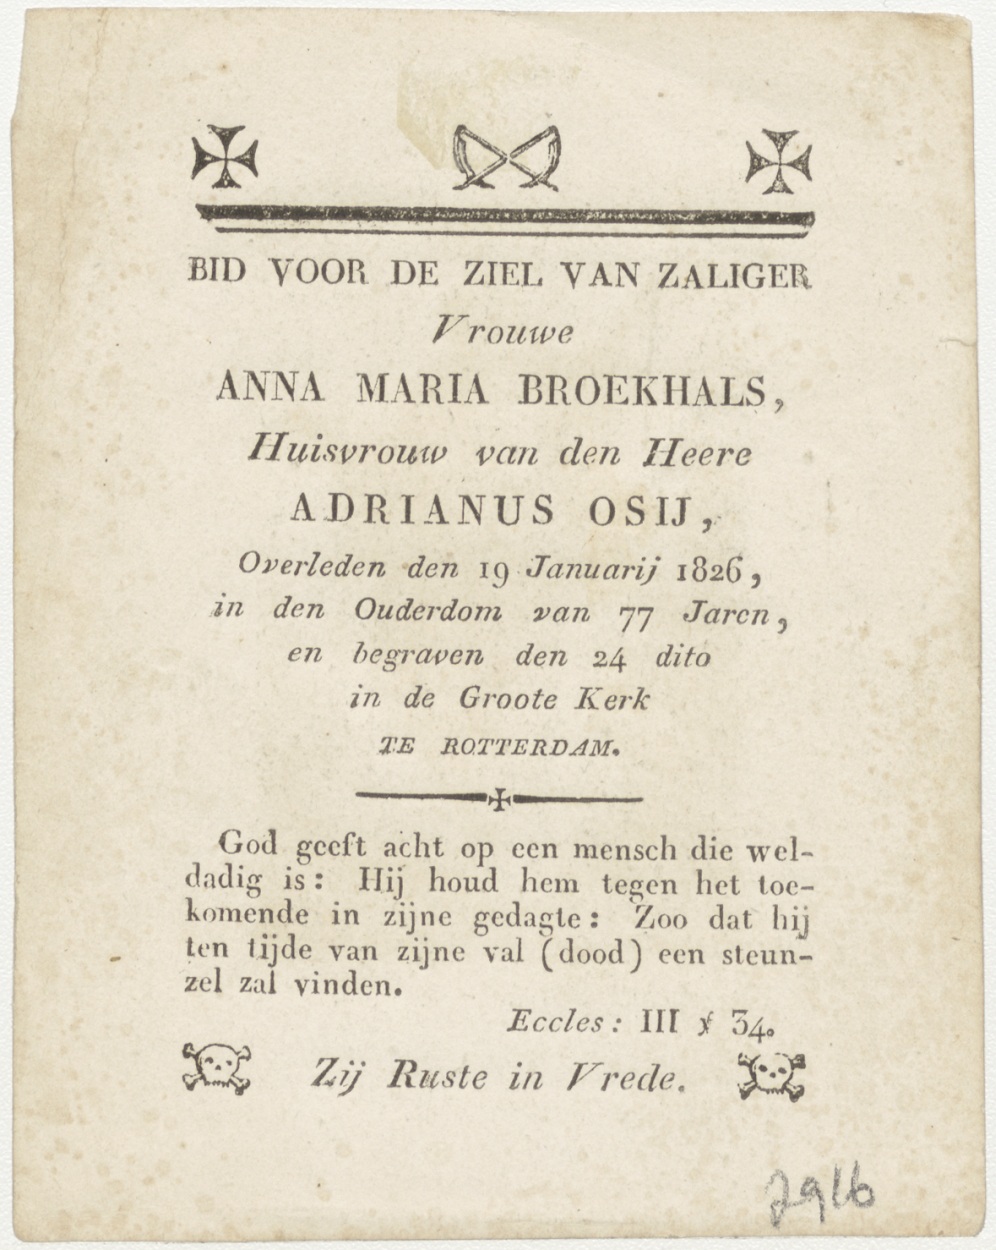 BID VOOR DE ZIEL VAN ZALIGER
Vrouwe
ANNA MARIA BROEKHALS,
Huisvrouw van den Heere
ADRIANUS OSIJ,
Overleden den 19 Januarij 1826,
in den Ouderdom van 77 Jaren,
en begraven den 24 dito
in de Groote Kerk
TE ROTTERDAM.
God geeft acht op een mensch die wel-
dadig is: Hij houd hem tegen het toe-
komende in zijne gedagte: Zoo dat hij
ten tijde van zijne val (dood) een steun-
zel zal vinden.
Eccles: III ℣ 34.
Zij Ruste in Vrede.
2916